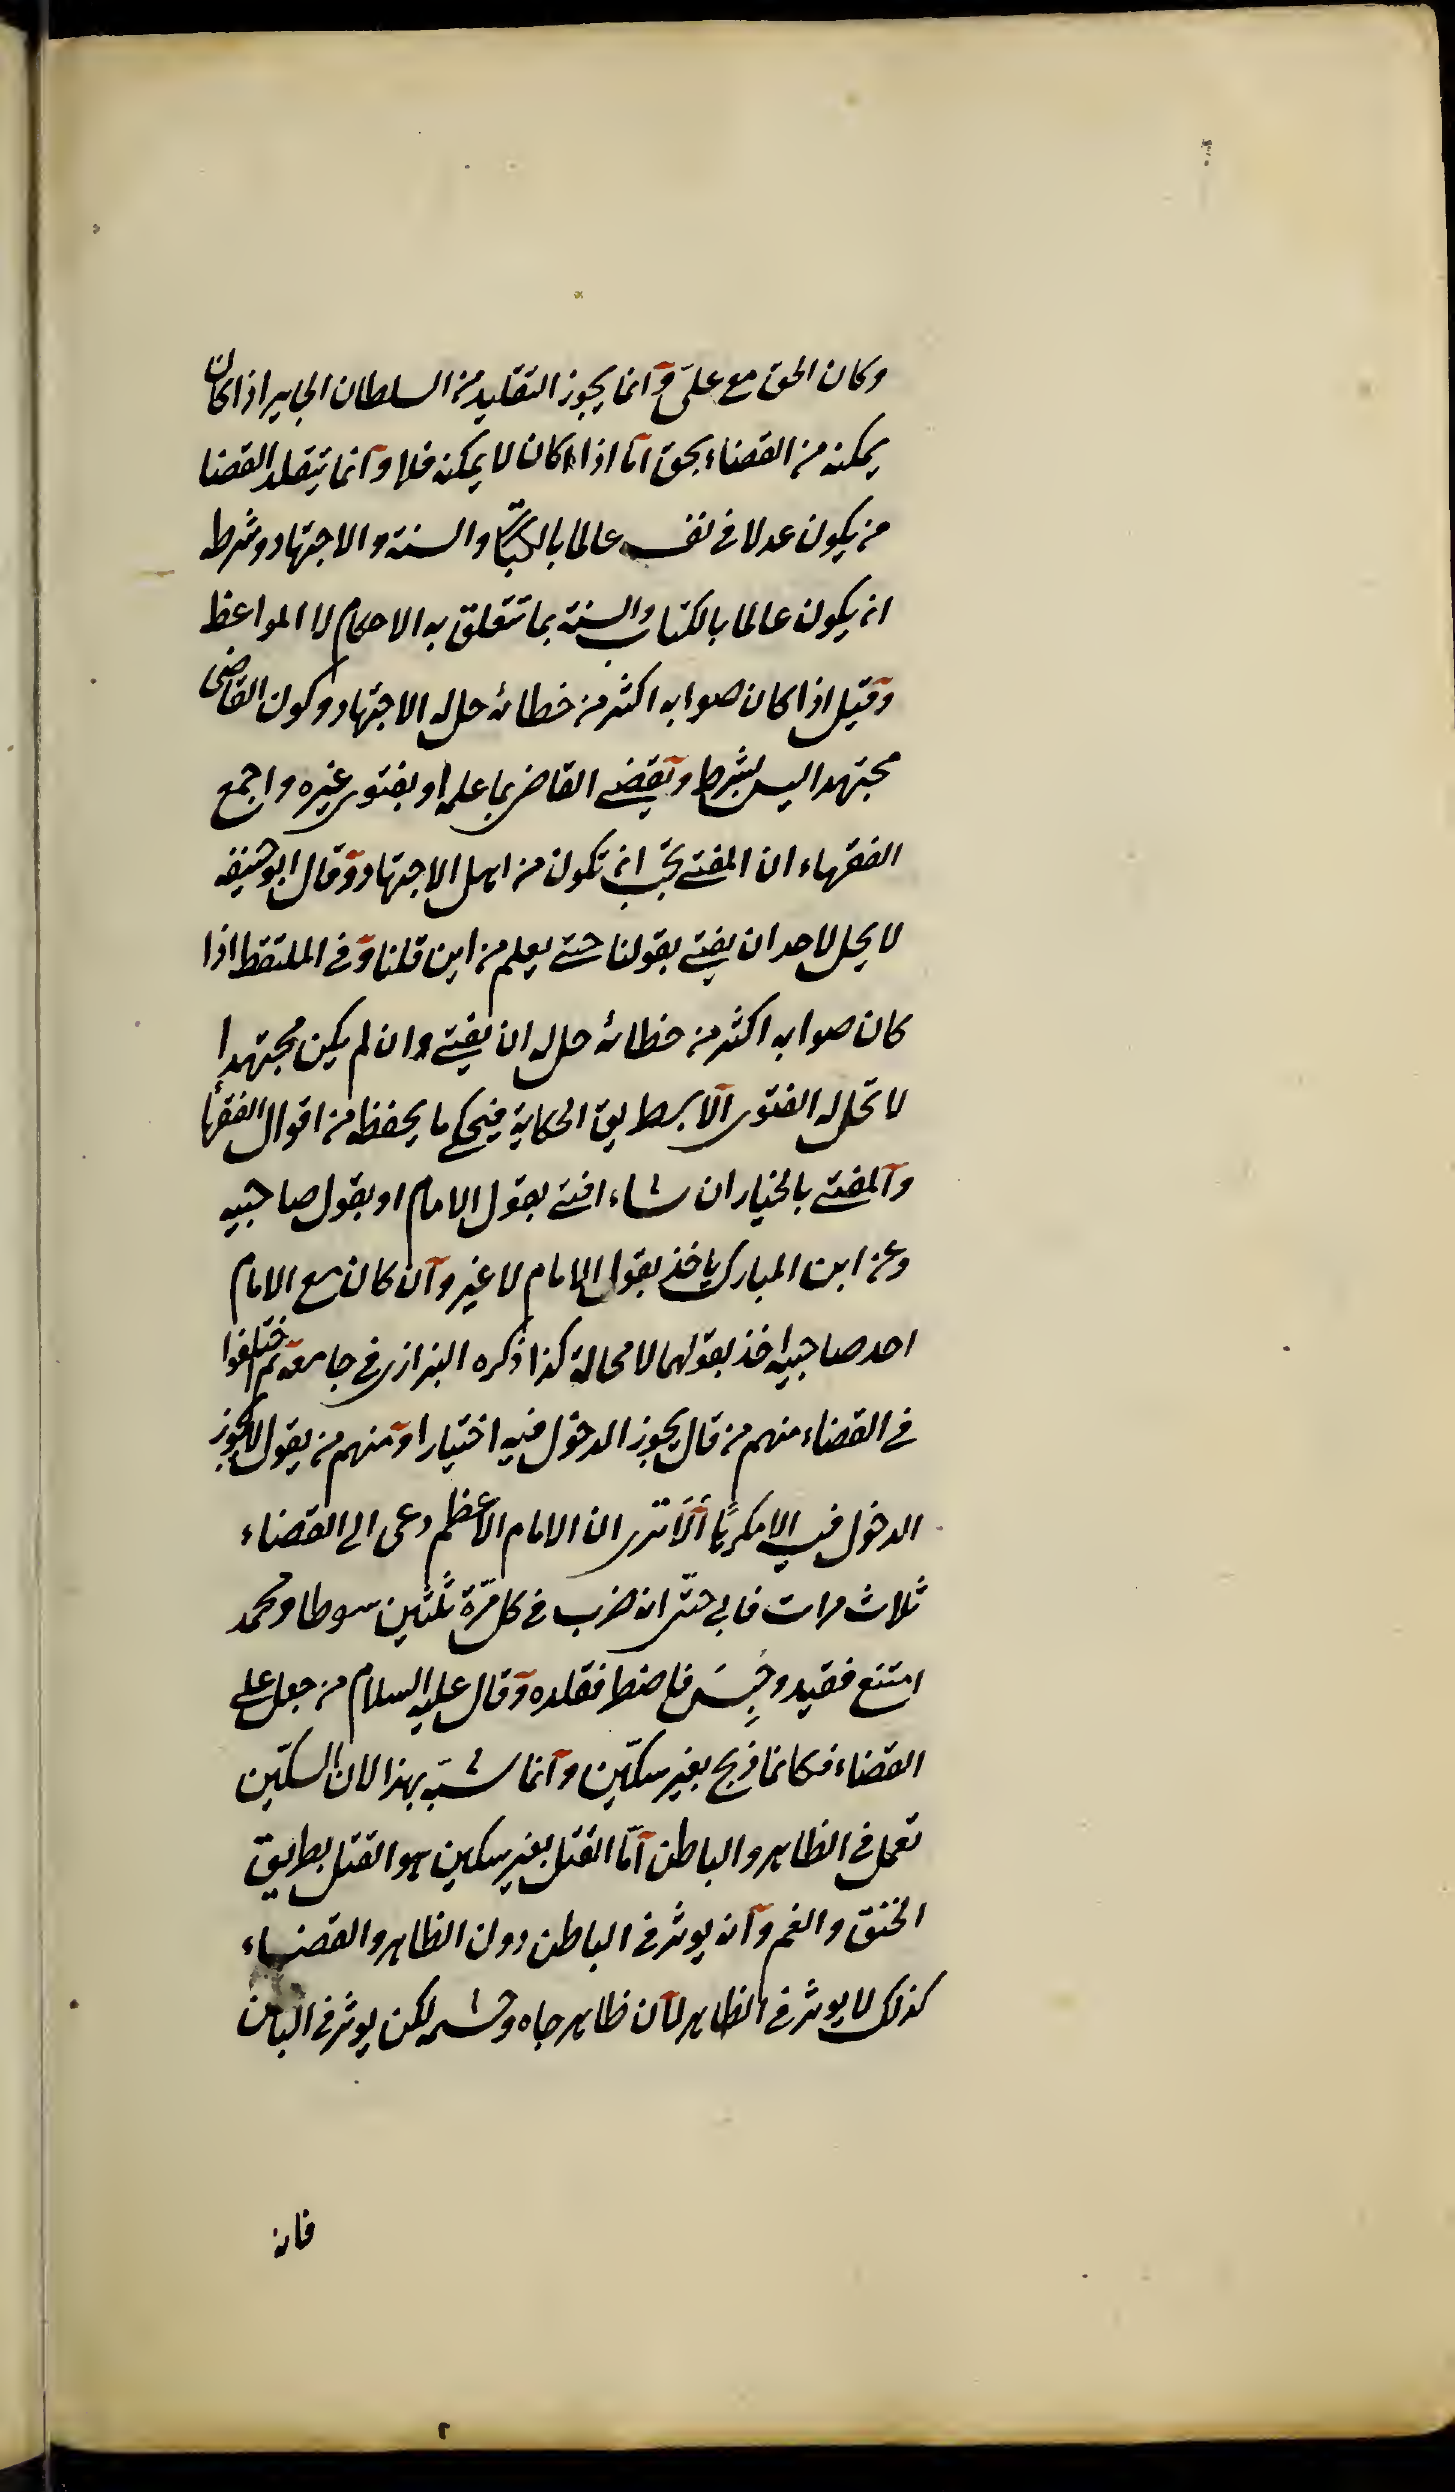 وكان الحق مع على وانما يجوز التقليد من السلطان الجاير اذا كان
يمكنه من القضاء بحق اما اذا كان لا يمكنه فلا وانما يتقلد القضا
من يكون عدلا فى نفسه عالما بالكتاب والسنة والاجتهاد وشرطه
ان يكون عالما بالكتاب والسنة بما تتعلق به الاحكام لا المواعظ
وقيل اذا كان صوابه اكثر من خطائه حل له الاجتهاد وكون القاضى
مجتهدا ليس بشرط ويقضى القاضى بما علمه او بفتوى غيره واجمع
الفقهاء ان المفتى يجب ان تكون من اهل الاجتهاد وقال ابو حنيفه
لا يحل لاحد ان يفتى بقولنا حتى يعلم من اين قلنا وفى الملتقط اذا
كان صوابه اكثر من خطائه حل له ان يفتى وان لم يكن مجتهدا
لا تحل له الفتوى الا بطريق الحكاية فيحكى ما يحفظه من اقوال الفقهاء
والمفتى بالخيار ان شاء افتى بقول الامام او بقول صاحبيه
وعن ابن المبارك ياخذ بقول الامام لا غير وان كان مع الامام
احد صاحبيه اخذ بقولهما لا محالة كذا ذكره البزازى فى جامعه ثم اختلفوا
فى القضاء منهم من قال يجوز الدخول فيه اختيارا ومنهم من يقول لا يجوز
الدخول فيه الا مكرها ألا ترى ان الامام الاعظم دعى الى القضاء
ثلاث مرات فابى حتى انه ضرب فى كل مرة ثلثين سوطا ومحمد
امتنع فقيد وحبس فاضطر فقلده وقال عليه السلام من جعل على
القضاء فكانما ذبح بغير سكين وانما شبه بهذا لان السكين
تعمل فى الظاهر والباطن اما القتل بغير سكين هو القتل بطريق
الخنق والغم وانه يوثر فى الباطن دون الظاهر والقضاء
كذلك لا يوثر فى الظاهر لان ظاهره جاه وحشمه لكن يوثر فى الباطن
فانه